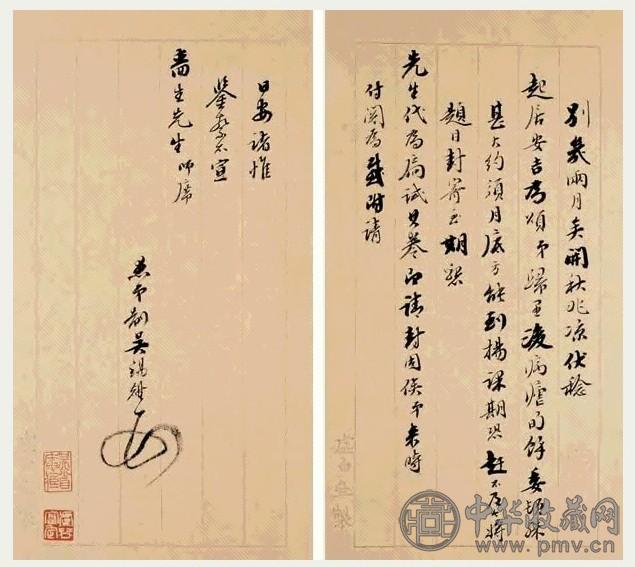 别幾兩月矣開秋兆涼伏稔
起居安吉為頌弟歸里後病瘧旬餘委頓殊
甚大約須月底方能到揚課期恐趕不及將
題目封寄至期懇
先生代為扃試其卷即請封固俟弟来時
付閱為感附請
日安諸惟
鑒察不宣
生先生師席
愚弟制吳錫麒
中华收藏网
www.pmv.cn